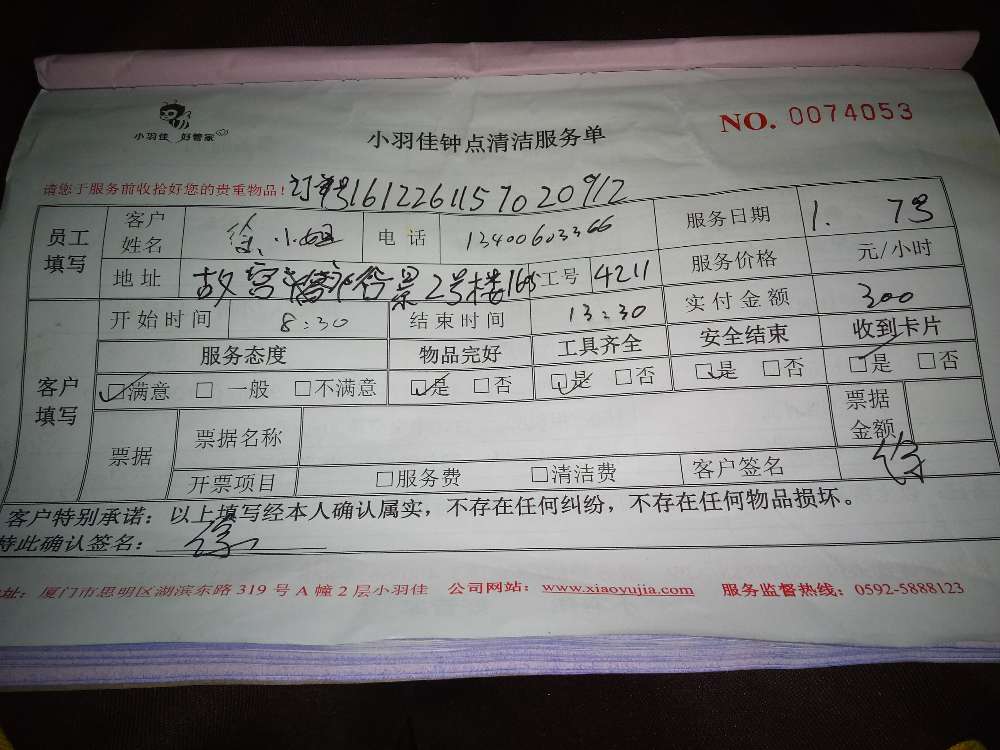 小羽佳 好管家
小羽佳钟点清洁服务单
NO. 0074053
请您于服务前收拾好您的贵重物品！
订单号161226115702092
员工填写 客户姓名 徐小姐 电话 13400603366 服务日期 1. 7号
地址 2号楼 工号 4211 服务价格 元/小时
客户填写 开始时间 8:30 结束时间 13:30 实付金额 300
服务态度 物品完好 工具齐全 安全结束 收到卡片
☑满意 □一般 □不满意 ☑是 □否 ☑是 □否 ☑是 □否 ☑是 □否
票据 票据名称 票据金额
开票项目 □服务费 □清洁费 客户签名 徐
客户特别承诺：以上填写经本人确认属实，不存在任何纠纷，不存在任何物品损坏。
特此确认签名： 徐
地址：厦门市思明区湖滨东路 319 号 A 幢 2 层小羽佳 公司网站：www.xiaoyujia.com 服务监督热线：0592-5888123